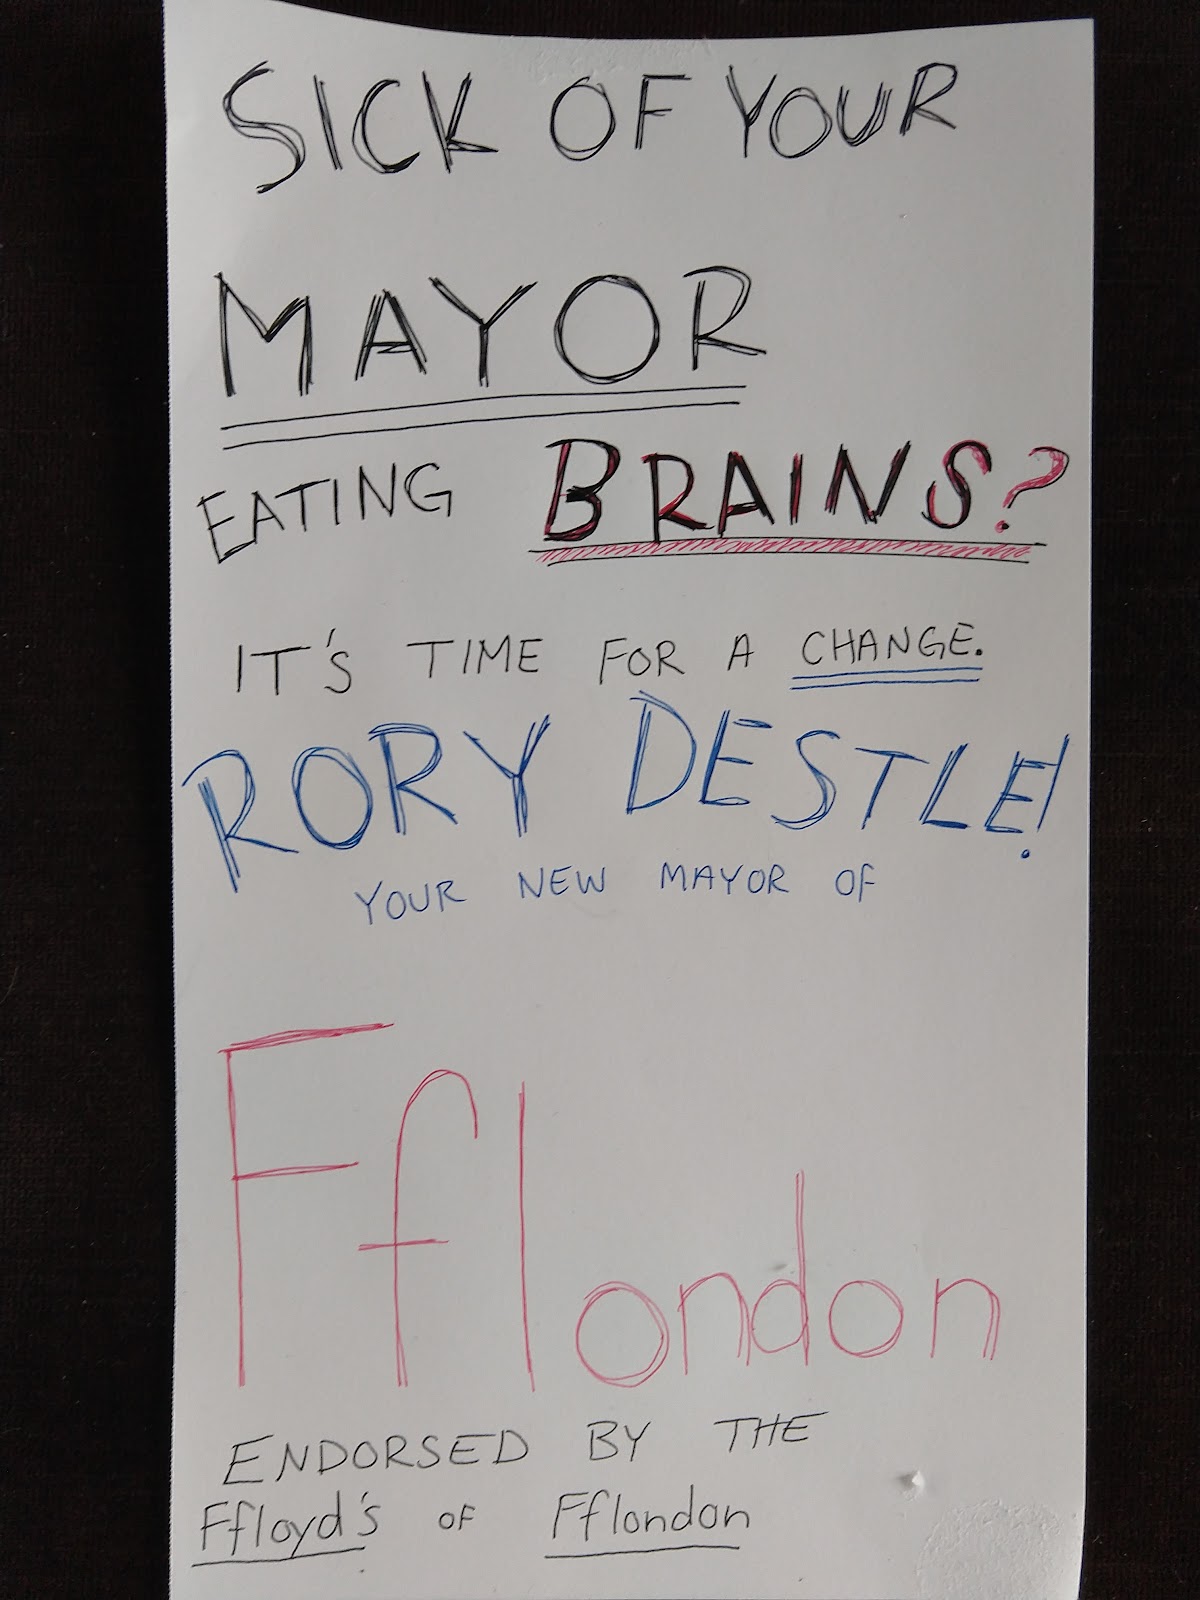 SICK OF YOUR
MAYOR
EATING BRAINS?
IT'S TIME FOR A CHANGE.
RORY DESTLE!
YOUR NEW MAYOR OF
Fflondon
ENDORSED BY THE
Ffloyd's OF Fflondon